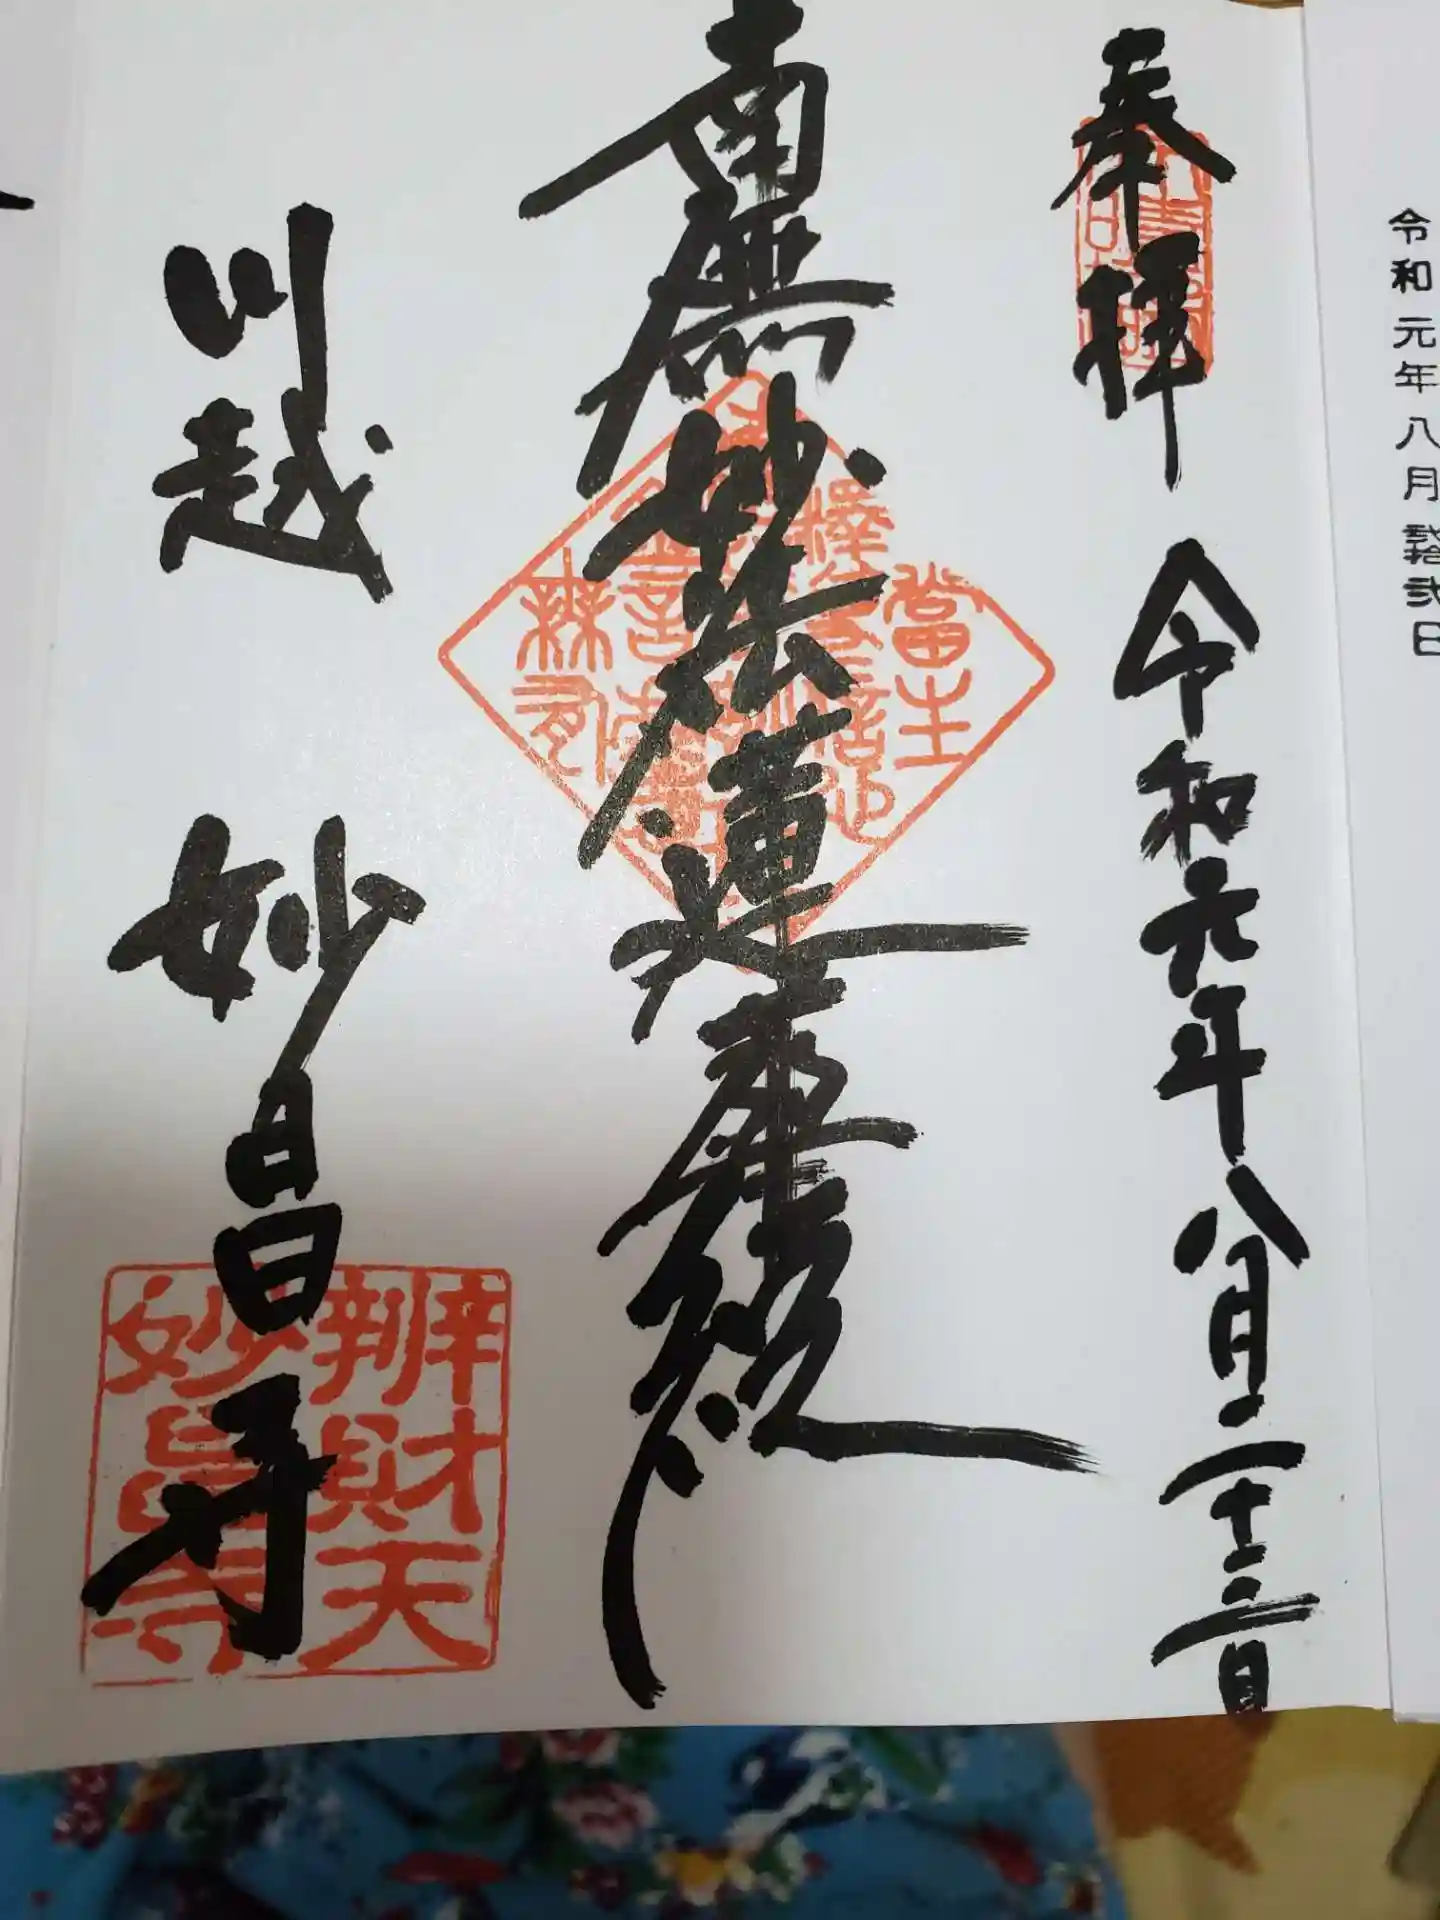 令和元年八月貳拾弐日
奉拝
令和元年八月二十二日
南無妙法蓮華経
川越
妙昌寺
辨財天
妙昌寺